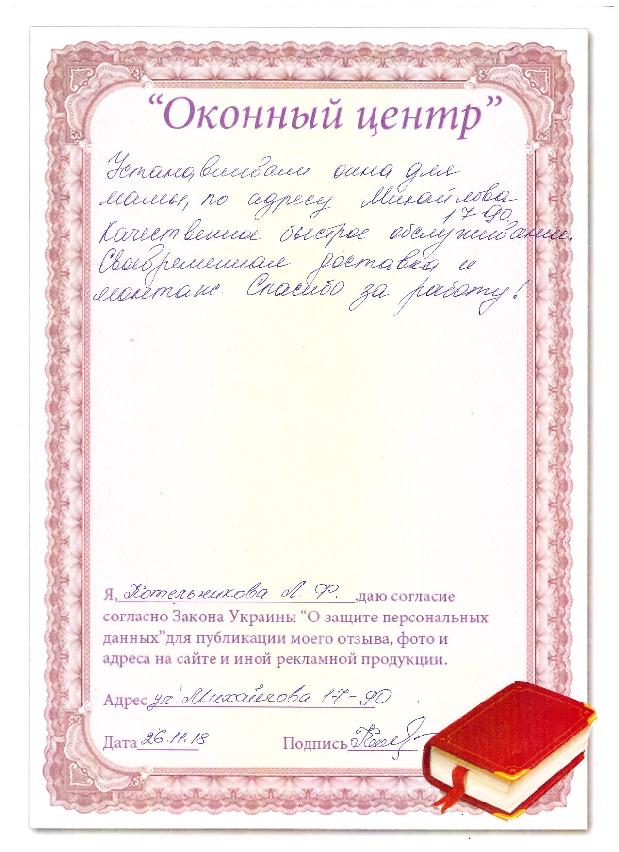 “Оконный центр”
Устанавливали окна для
мамы, по адресу Михайлова
17-90.
Качественное быстрое обслуживание.
Своевременная доставка и
монтаж. Спасибо за работу!
Я, Котельникова Л. Ф. ,даю согласие
согласно Закона Украины “О защите персональных
данных”для публикации моего отзыва, фото и
адреса на сайте и иной рекламной продукции.
Адрес ул. Михайлова 17-90
Дата 26.11.18 Подпись